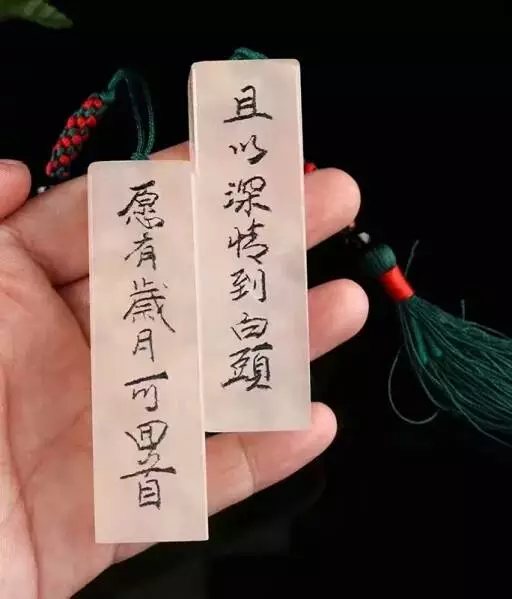 愿有歲月可回首
且以深情到白頭